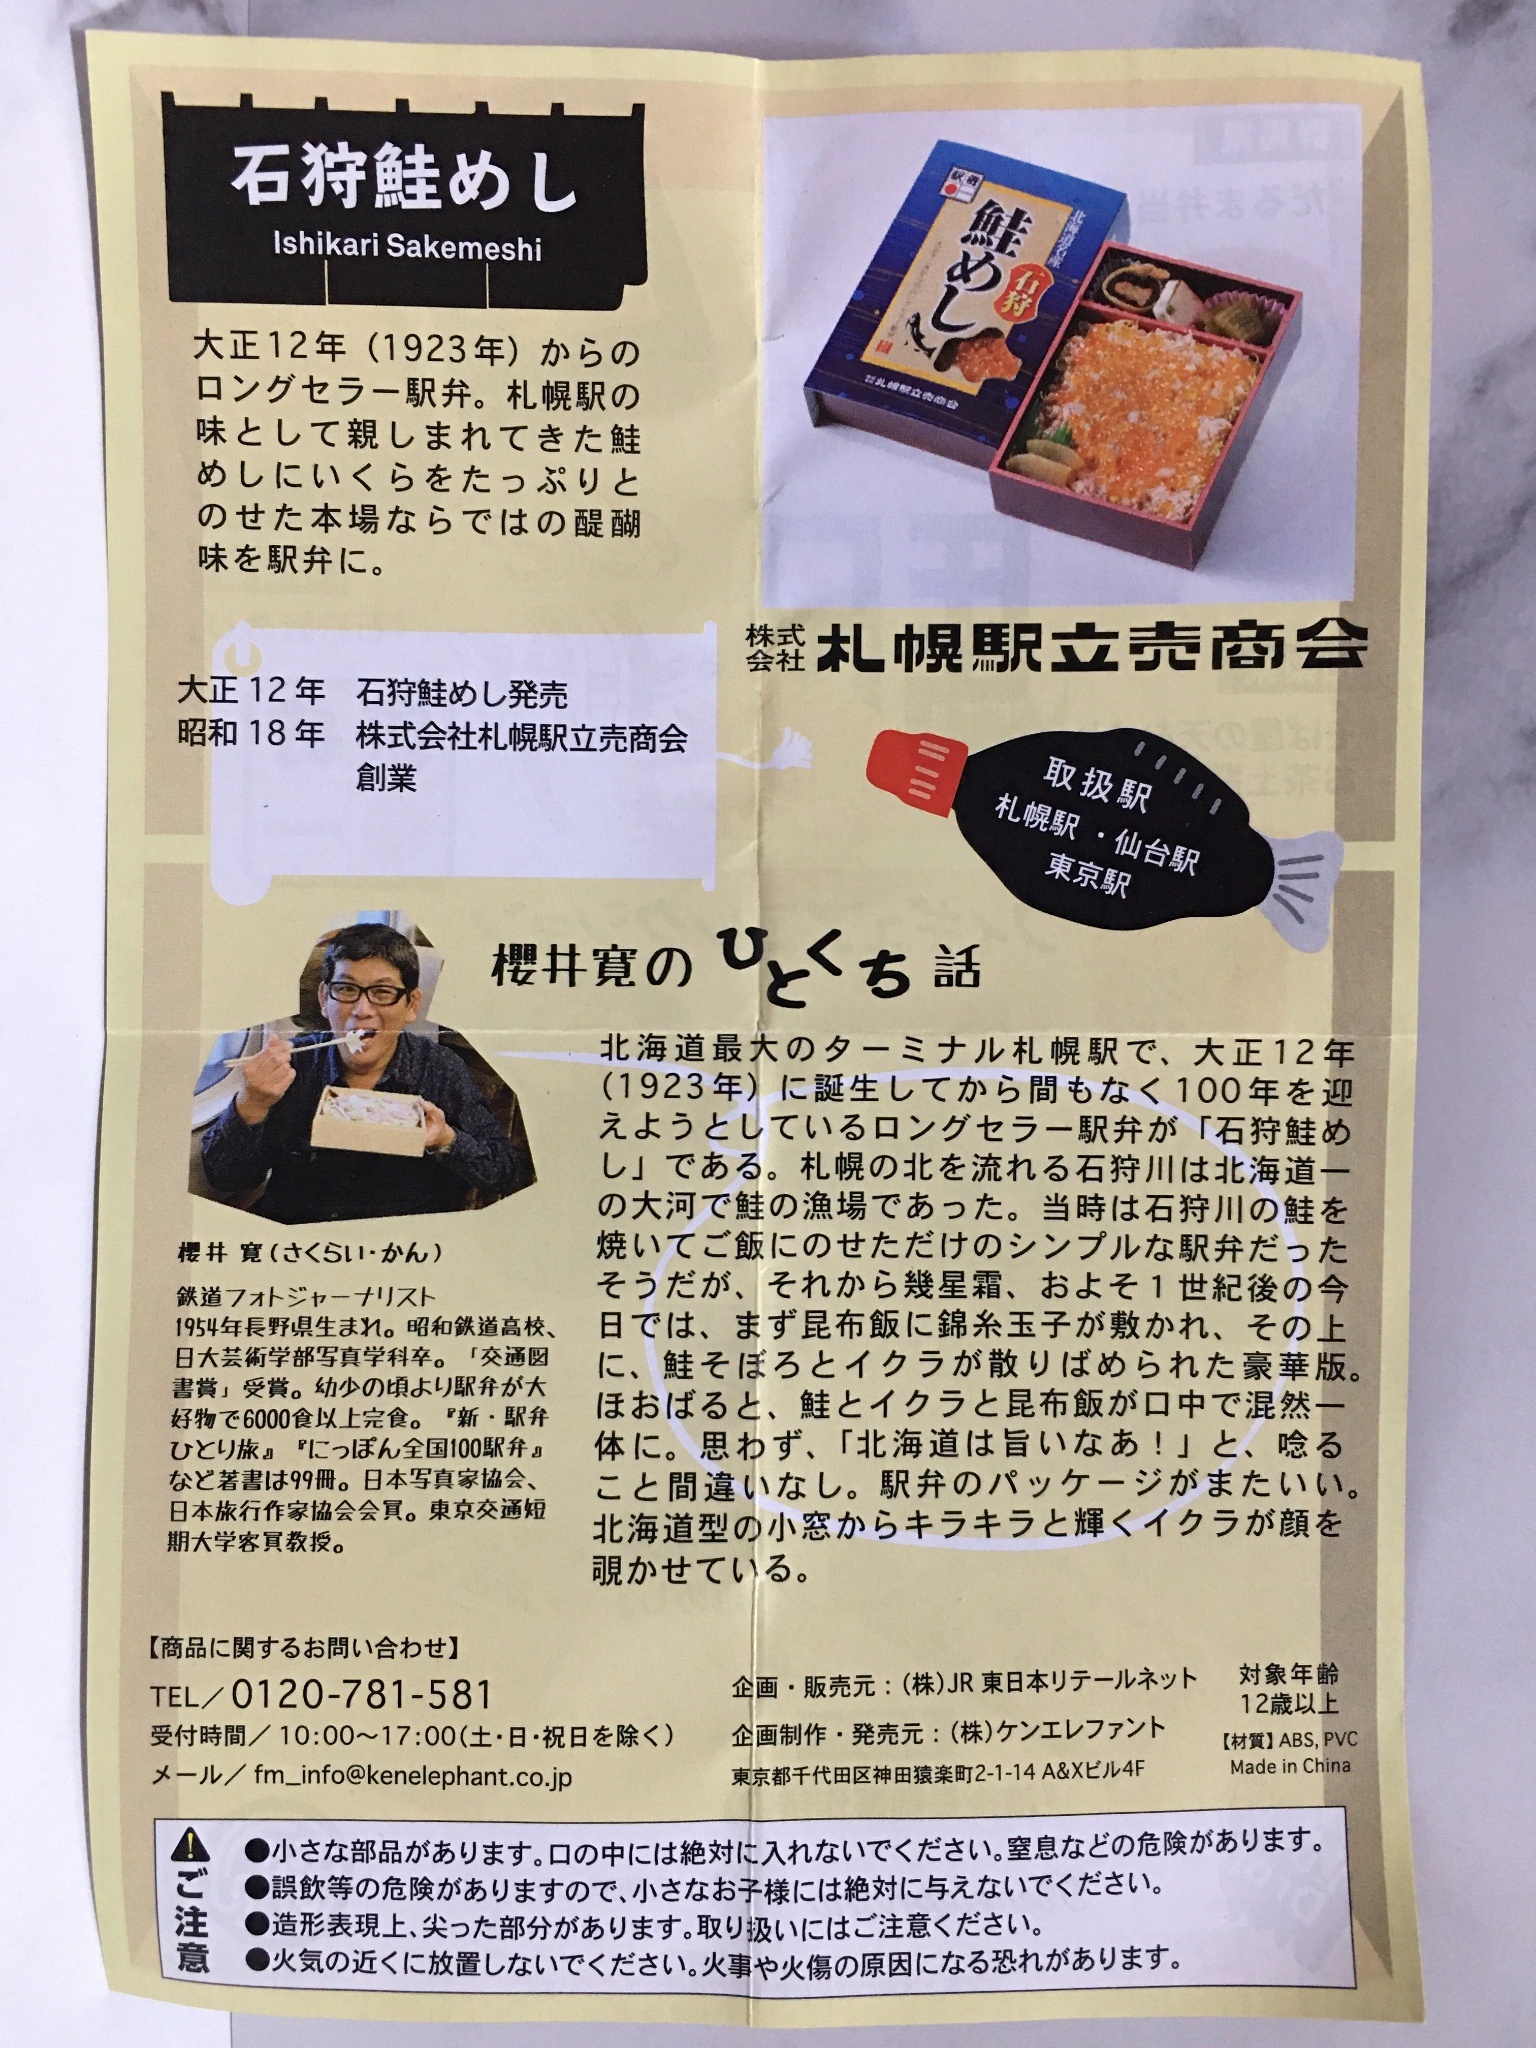 石狩鮭めし
Ishikari Sakemeshi
大正12年（1923年）からの
ロングセラー駅弁。札幌駅の
味として親しまれてきた鮭
めしにいくらをたっぷりと
のせた本場ならではの醍醐
味を駅弁に。
駅弁
北海道名産
石狩
鮭めし
札幌駅立売商会
株式会社 札幌駅立売商会
大正12年 石狩鮭めし発売
昭和18年 株式会社札幌駅立売商会
創業
取扱駅
札幌駅・仙台駅
東京駅
櫻井寛のひとくち話
櫻井 寛（さくらい・かん）
鉄道フォトジャーナリスト
1954年長野県生まれ。昭和鉄道高校、
日大芸術学部写真学科卒。「交通図
書賞」受賞。幼少の頃より駅弁が大
好物で6000食以上完食。『新・駅弁
ひとり旅』『にっぽん全国100駅弁』
など著書は99冊。日本写真家協会、
日本旅行作家協会会員。東京交通短
期大学客員教授。
北海道最大のターミナル札幌駅で、大正12年
（1923年）に誕生してから間もなく100年を迎
えようとしているロングセラー駅弁が「石狩鮭め
し」である。札幌の北を流れる石狩川は北海道一
の大河で鮭の漁場であった。当時は石狩川の鮭を
焼いてご飯にのせただけのシンプルな駅弁だった
そうだが、それから幾星霜、およそ１世紀後の今
日では、まず昆布飯に錦糸玉子が敷かれ、その上
に、鮭そぼろとイクラが散りばめられた豪華版。
ほおばると、鮭とイクラと昆布飯が口中で混然一
体に。思わず、「北海道は旨いなあ！」と、唸る
こと間違いなし。駅弁のパッケージがまたいい。
北海道型の小窓からキラキラと輝くイクラが顔を
覗かせている。
【商品に関するお問い合わせ】
TEL／0120-781-581
受付時間／10:00～17:00（土・日・祝日を除く）
メール／fm_info@kenelephant.co.jp
企画・販売元：（株）JR東日本リテールネット
企画制作・発売元：（株）ケンエレファント
東京都千代田区神田猿楽町2-1-14 A&Xビル4F
対象年齢
12歳以上
【材質】ABS, PVC
Made in China
ご注意
●小さな部品があります。口の中には絶対に入れないでください。窒息などの危険があります。
●誤飲等の危険がありますので、小さなお子様には絶対に与えないでください。
●造形表現上、尖った部分があります。取り扱いにはご注意ください。
●火気の近くに放置しないでください。火事や火傷の原因になる恐れがあります。